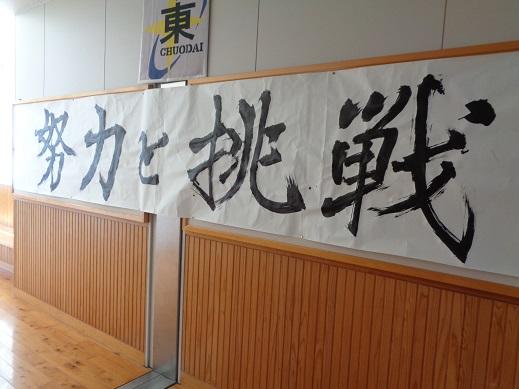 東
CHUODAI
努力と挑戦